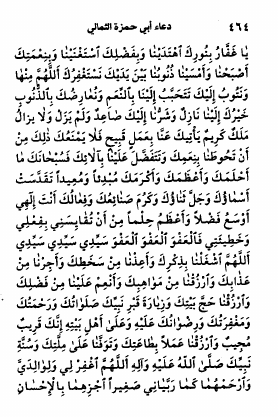 ٤٦٤ دعاء أبي حمزة الثمالي
يَا غَفَّارُ بِنُورِكَ اهْتَدَيْنَا وَبِفَضْلِكَ اسْتَغْنَيْنَا وَبِنِعْمَتِكَ
أَصْبَحْنَا وَأَمْسَيْنَا ذُنُوبُنَا بَيْنَ يَدَيْكَ نَسْتَغْفِرُكَ اللَّهُمَّ مِنْهَا
وَنَتُوبُ إِلَيْكَ تَتَحَبَّبُ إِلَيْنَا بِالنِّعَمِ وَنُعَارِضُكَ بِالذُّنُوبِ
خَيْرُكَ إِلَيْنَا نَازِلٌ وَشَرُّنَا إِلَيْكَ صَاعِدٌ وَلَمْ يَزَلْ وَلَا يَزَالُ
مَلَكٌ كَرِيمٌ يَأْتِيكَ عَنَّا بِعَمَلٍ قَبِيحٍ فَلَا يَمْنَعُكَ ذَلِكَ مِنْ
أَنْ تَحُوطَنَا بِنِعَمِكَ وَتَتَفَضَّلَ عَلَيْنَا بِآلَائِكَ فَسُبْحَانَكَ مَا
أَحْلَمَكَ وَأَعْظَمَكَ وَأَكْرَمَكَ مُبْدِئاً وَمُعِيداً تَقَدَّسَتْ
أَسْمَاؤُكَ وَجَلَّ ثَنَاؤُكَ وَكَرُمَ صَنَائِعُكَ وَفِعَالُكَ أَنْتَ إِلَهِي
أَوْسَعُ فَضْلاً وَأَعْظَمُ حِلْماً مِنْ أَنْ تُقَايِسَنِي بِفِعْلِي
وَخَطِيئَتِي فَالْعَفْوَ الْعَفْوَ الْعَفْوَ سَيِّدِي سَيِّدِي سَيِّدِي
اللَّهُمَّ اشْغَلْنَا بِذِكْرِكَ وَأَعِذْنَا مِنْ سَخَطِكَ وَأَجِرْنَا مِنْ
عَذَابِكَ وَارْزُقْنَا مِنْ مَوَاهِبِكَ وَأَنْعِمْ عَلَيْنَا مِنْ فَضْلِكَ
وَارْزُقْنَا حَجَّ بَيْتِكَ وَزِيَارَةَ قَبْرِ نَبِيِّكَ صَلَوَاتُكَ وَرَحْمَتُكَ
وَمَغْفِرَتُكَ وَرِضْوَانُكَ عَلَيْهِ وَعَلَى أَهْلِ بَيْتِهِ إِنَّكَ قَرِيبٌ
مُجِيبٌ وَارْزُقْنَا عَمَلاً بِطَاعَتِكَ وَتَوَفَّنَا عَلَى مِلَّتِكَ وَسُنَّةِ
نَبِيِّكَ صَلَّى اللَّهُ عَلَيْهِ وَآلِهِ اللَّهُمَّ اغْفِرْ لِي وَلِوَالِدَيَّ
وَارْحَمْهُمَا كَمَا رَبَّيَانِي صَغِيراً اجْزِهِمَا بِالْإِحْسَانِ